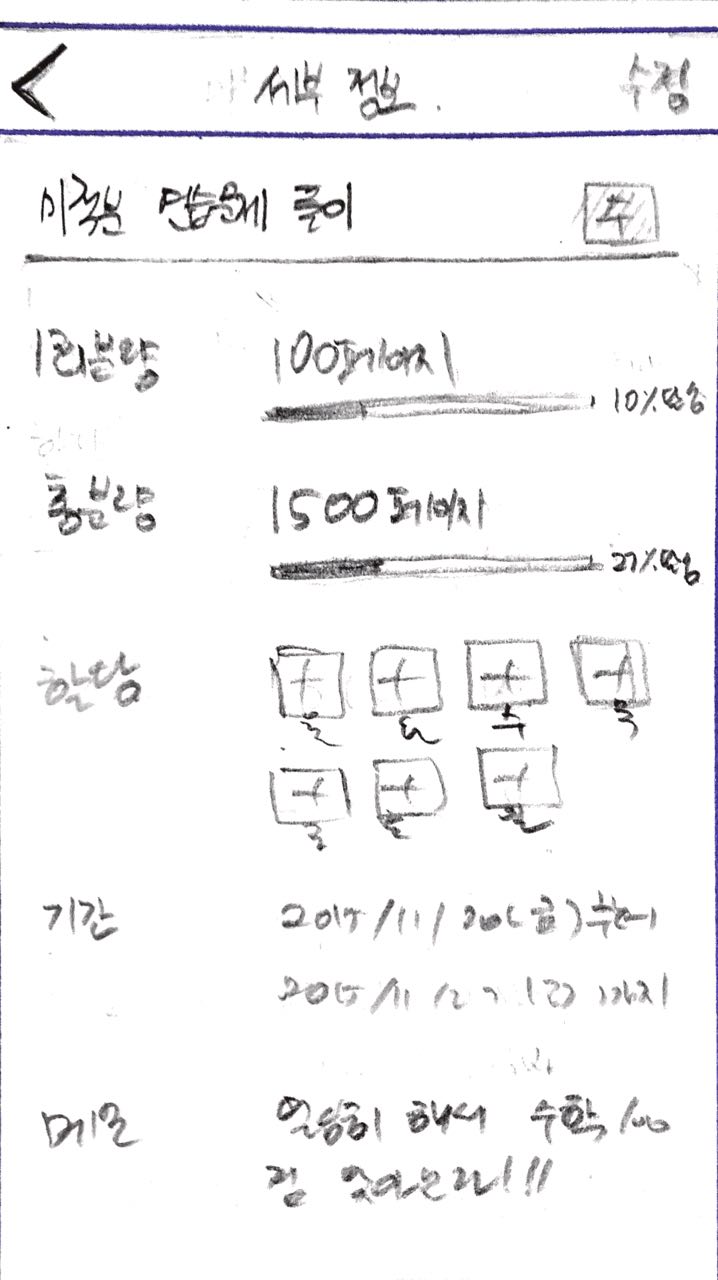 < 세부 정보 수정
미적분 연습문제 풀이 수
1회분량 100페이지
10%도송
총분량 1500페이지
27%도송
할당 + + + +
월 화 수 목
+ + +
금 토 일
기간 2015/11/20(금)부터
2015/11/27(금)까지
메모 열심히 해서 수학 100
점 맞아보자!!!